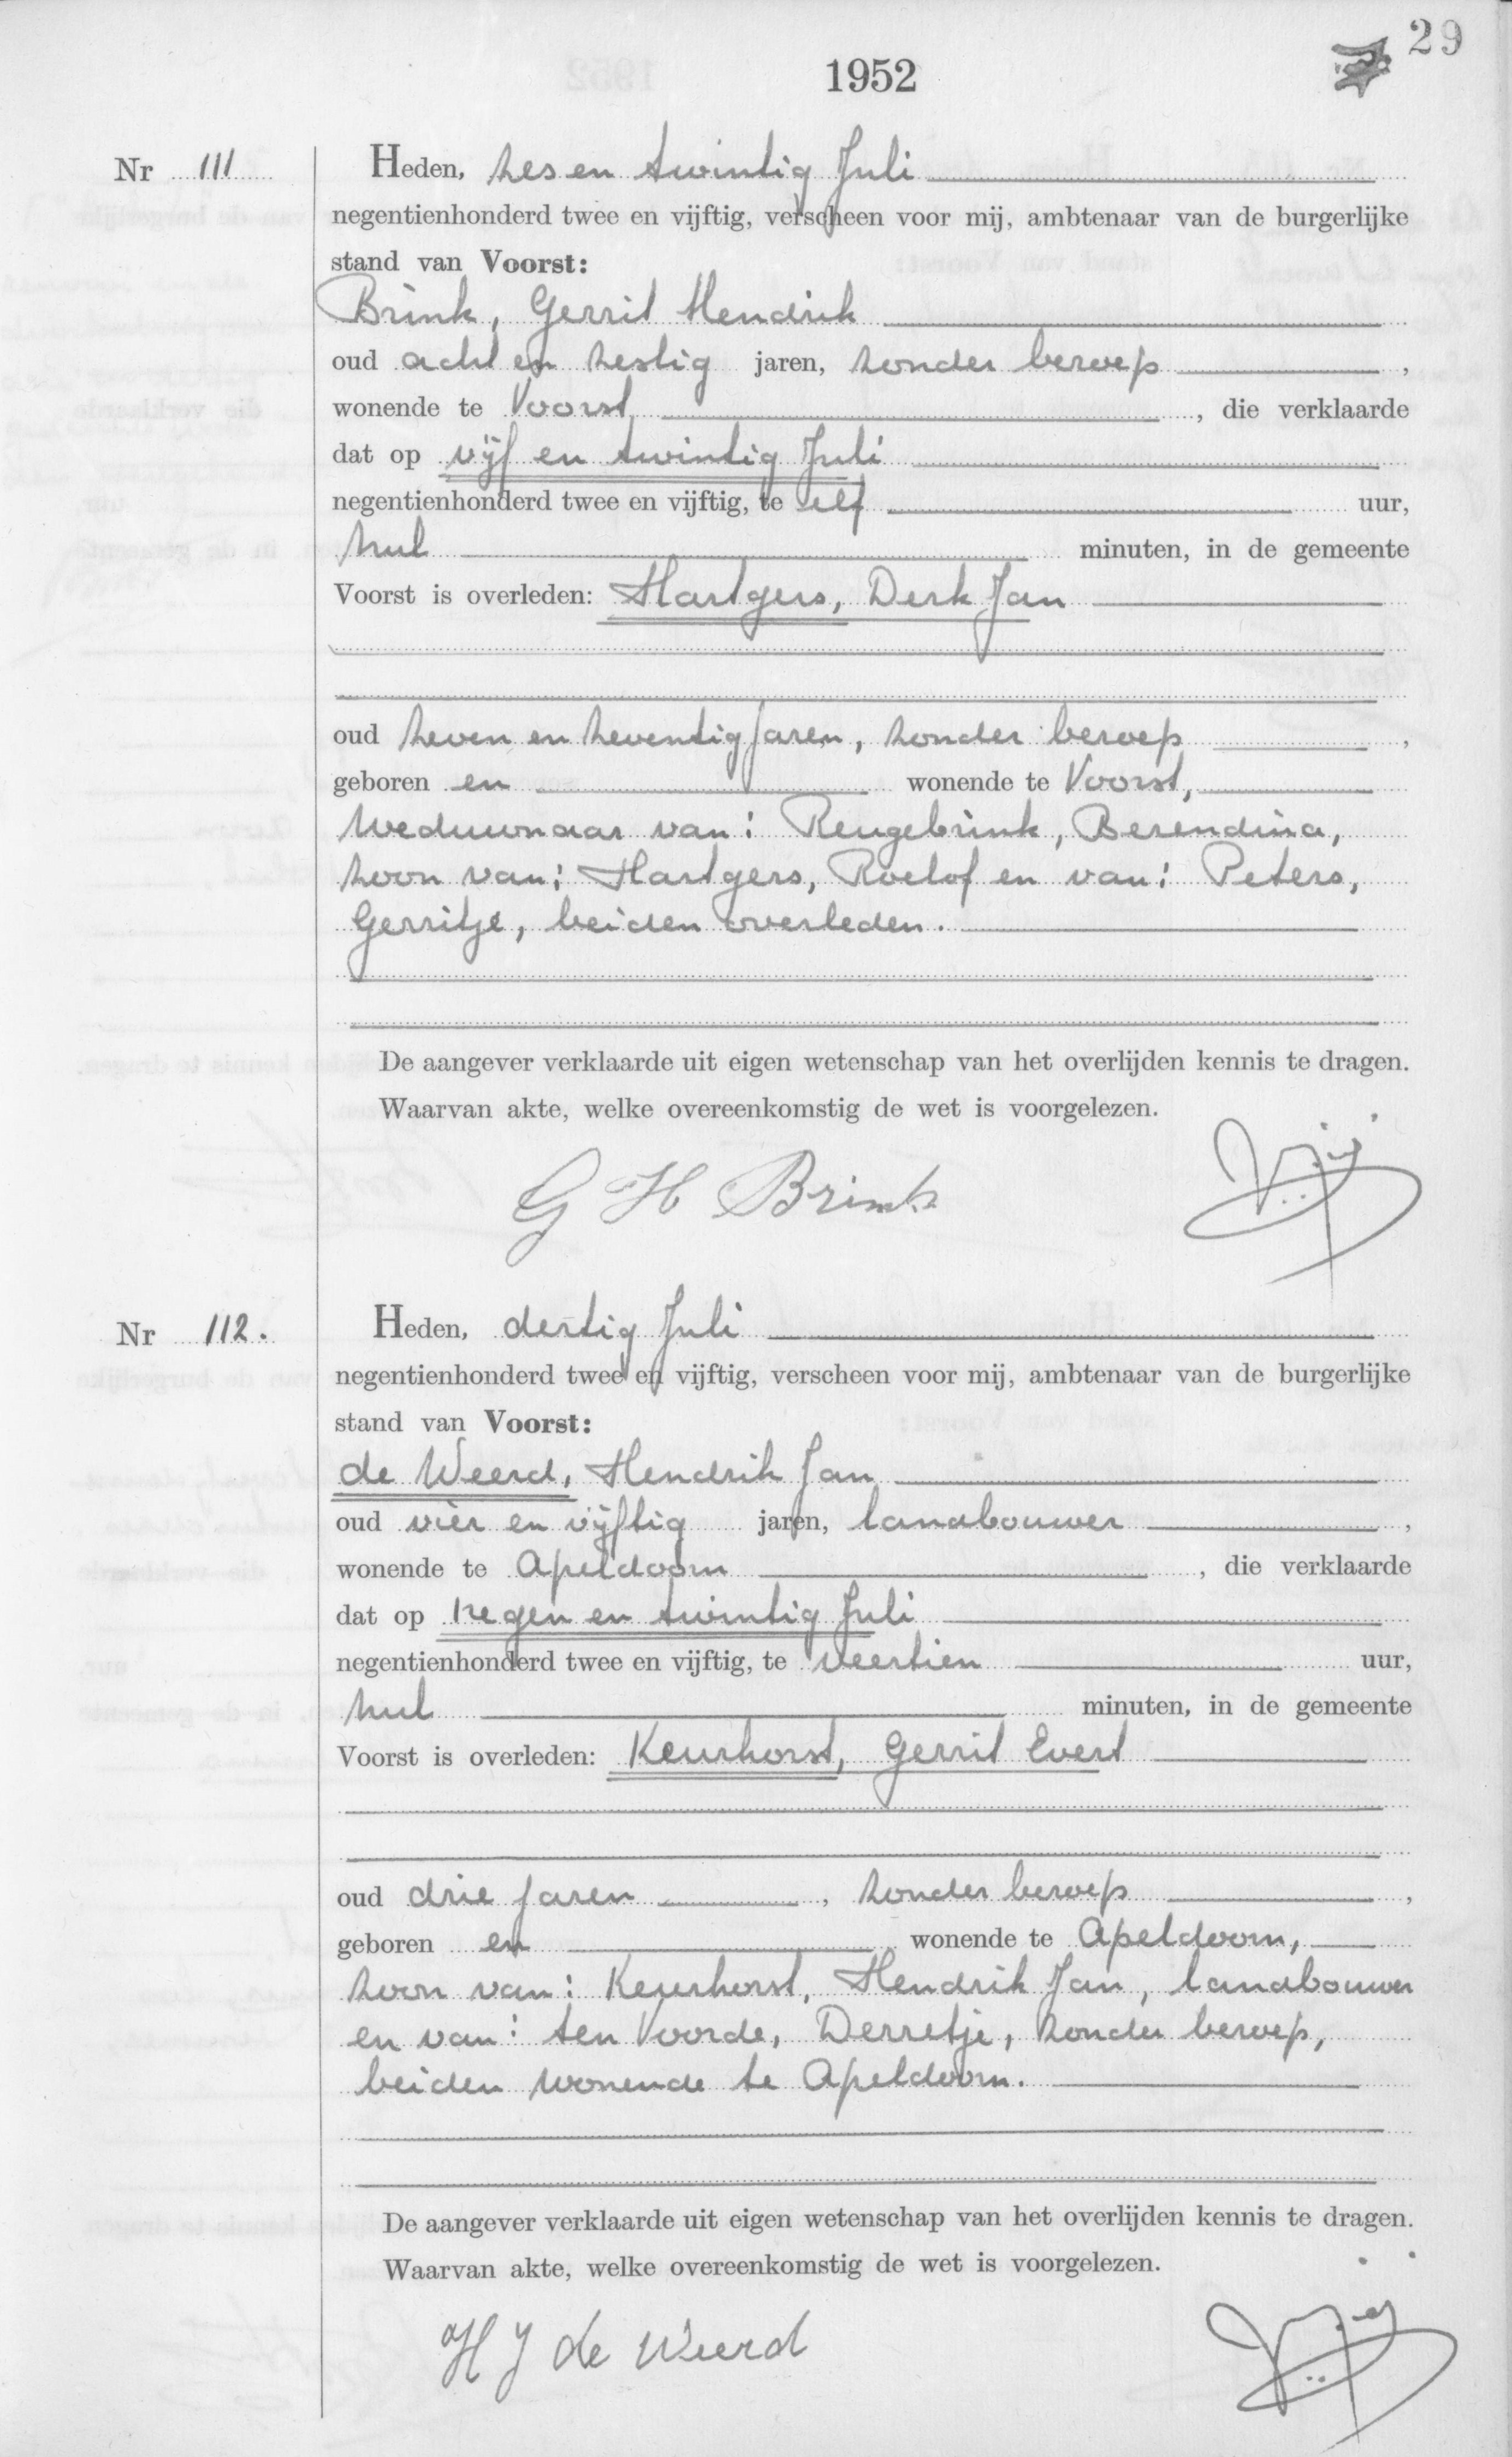 29
1952
Nr 111
Heden, zes en twintig Juli
negentienhonderd twee en vijftig, verscheen voor mij, ambtenaar van de burgerlijke
stand van Voorst:
Brink, Gerrit Hendrik
oud acht en zestig jaren, zonder beroep ,
wonende te Voorst , die verklaarde
dat op vijf en twintig Juli
negentienhonderd twee en vijftig, te elf uur,
nul minuten, in de gemeente
Voorst is overleden: Hartgers, Derk Jan
oud zeven en zeventig jaren, zonder beroep ,
geboren en wonende te Voorst,
weduwnaar van: Reugebrink, Berendina,
zoon van: Hartgers, Roelof en van: Peters,
Gerritje, beiden overleden.
De aangever verklaarde uit eigen wetenschap van het overlijden kennis te dragen.
Waarvan akte, welke overeenkomstig de wet is voorgelezen.
G H Brink
Nr 112.
Heden, dertig Juli
negentienhonderd twee en vijftig, verscheen voor mij, ambtenaar van de burgerlijke
stand van Voorst:
de Weerd, Hendrik Jan
oud vier en vijftig jaren, landbouwer ,
wonende te Apeldoorn , die verklaarde
dat op negen en twintig Juli
negentienhonderd twee en vijftig, te veertien uur,
nul minuten, in de gemeente
Voorst is overleden: Keurhorst, Gerrit Evert
oud drie jaren , zonder beroep ,
geboren en wonende te Apeldoorn,
zoon van: Keurhorst, Hendrik Jan, landbouwer
en van: ten Voorde, Derretje, zonder beroep,
beiden wonende te Apeldoorn.
De aangever verklaarde uit eigen wetenschap van het overlijden kennis te dragen.
Waarvan akte, welke overeenkomstig de wet is voorgelezen.
H J de Weerd